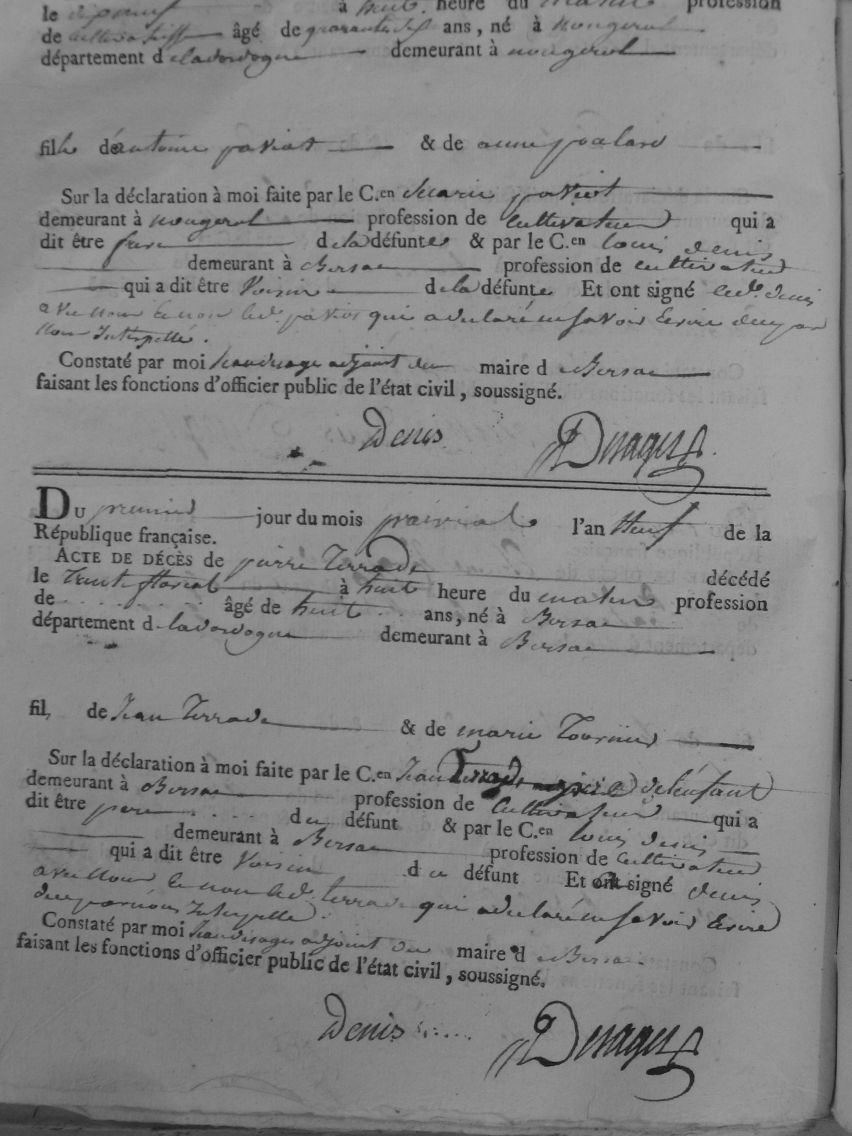 le à huit heure du matin profession
de âgé de ans, né à nougerol
département d eladordogne demeurant à nougerol
fille de antoine paviot & de anne
Sur la déclaration à moi faite par le C.en paviot
demeurant à nougerol profession de cultivateur qui a
dit être frere de la défunte & par le C.en louis denis
demeurant à Bersac profession de cultivateur
qui a dit être Voisin de la défunte Et ont signé led. denis
avec nous & non led. paviot qui a declaré ne savoir Ecrire denpar
nous Interpellé.
Constaté par moi adjoint du maire d eBersac
faisant les fonctions d'officier public de l'état civil, soussigné.
Denis Desages
DU premier jour du mois prairial l'an Neuf de la
République française.
ACTE DE DÉCÈS de pierre Terrade décédé
le trente floreal à huit heure du matin profession
de âgé de huit ans, né à Bersac
département d eladordogne demeurant à Bersac
fil, de Jean Terrade & de marie Tournier
Sur la déclaration à moi faite par le C.en Jean Terrade pere de l'enfant
demeurant à Bersac profession de cultivateur qui a
dit être pere du défunt & par le C.en louis denis
demeurant à Bersac profession de cultivateur
qui a dit être Voisin du défunt Et ont signé denis
avec nous & non led. terrade qui a declaré ne savoir Ecrire
de par nous Interpellé.
Constaté par moi Jean desages adjoint du maire d eBersac
faisant les fonctions d'officier public de l'état civil, soussigné.
Denis Desages